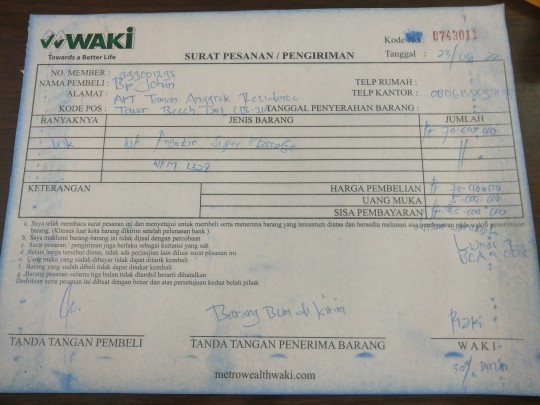 WAKi
Towards a Better Life
Kode No. 0743011
SURAT PESANAN / PENGIRIMAN
Tanggal : 23/
NO. MEMBER :
NAMA PEMBELI : Bp. John
TELP RUMAH :
ALAMAT : APT Taman Anggrek Residence
TELP KANTOR :
KODE POS : Tower Beech
TANGGAL PENYERAHAN BARANG :
BANYAKNYA JENIS BARANG JUMLAH
Super
1329
KETERANGAN
HARGA PEMBELIAN
UANG MUKA 5.000.000
SISA PEMBAYARAN
a. Saya telah membaca surat pesanan ini dan menyetujui untuk membeli serta menerima barang yang tercantum diatas dan bersedia melunasi sisa pembayaran pada waktu penerimaan
barang. (Khusus luar kota barang dikirim setelah pelunasan bank)
b. Saya maklumi barang-barang ini tidak dijual dengan percobaan
c. Surat pesanan / pengiriman juga berlaku sebagai kuitansi yang sah
d. Selain harga tersebut diatas, tidak ada perjanjian lain diluar surat pesanan ini
e. Uang muka yang sudah dibayar tidak dapat ditarik kembali
f. Barang yang sudah dibeli tidak dapat ditukar kembali
g. Barang pesanan selama tiga bulan tidak diambil berarti dibatalkan
Demikian surat pesanan ini dibuat dengan benar dan atas persetujuan kedua belah pihak
Lunas
BCA
Barang Blm di kirim
Rizki
TANDA TANGAN PEMBELI TANDA TANGAN PENERIMA BARANG WAKI
30%
metrowealthwaki.com